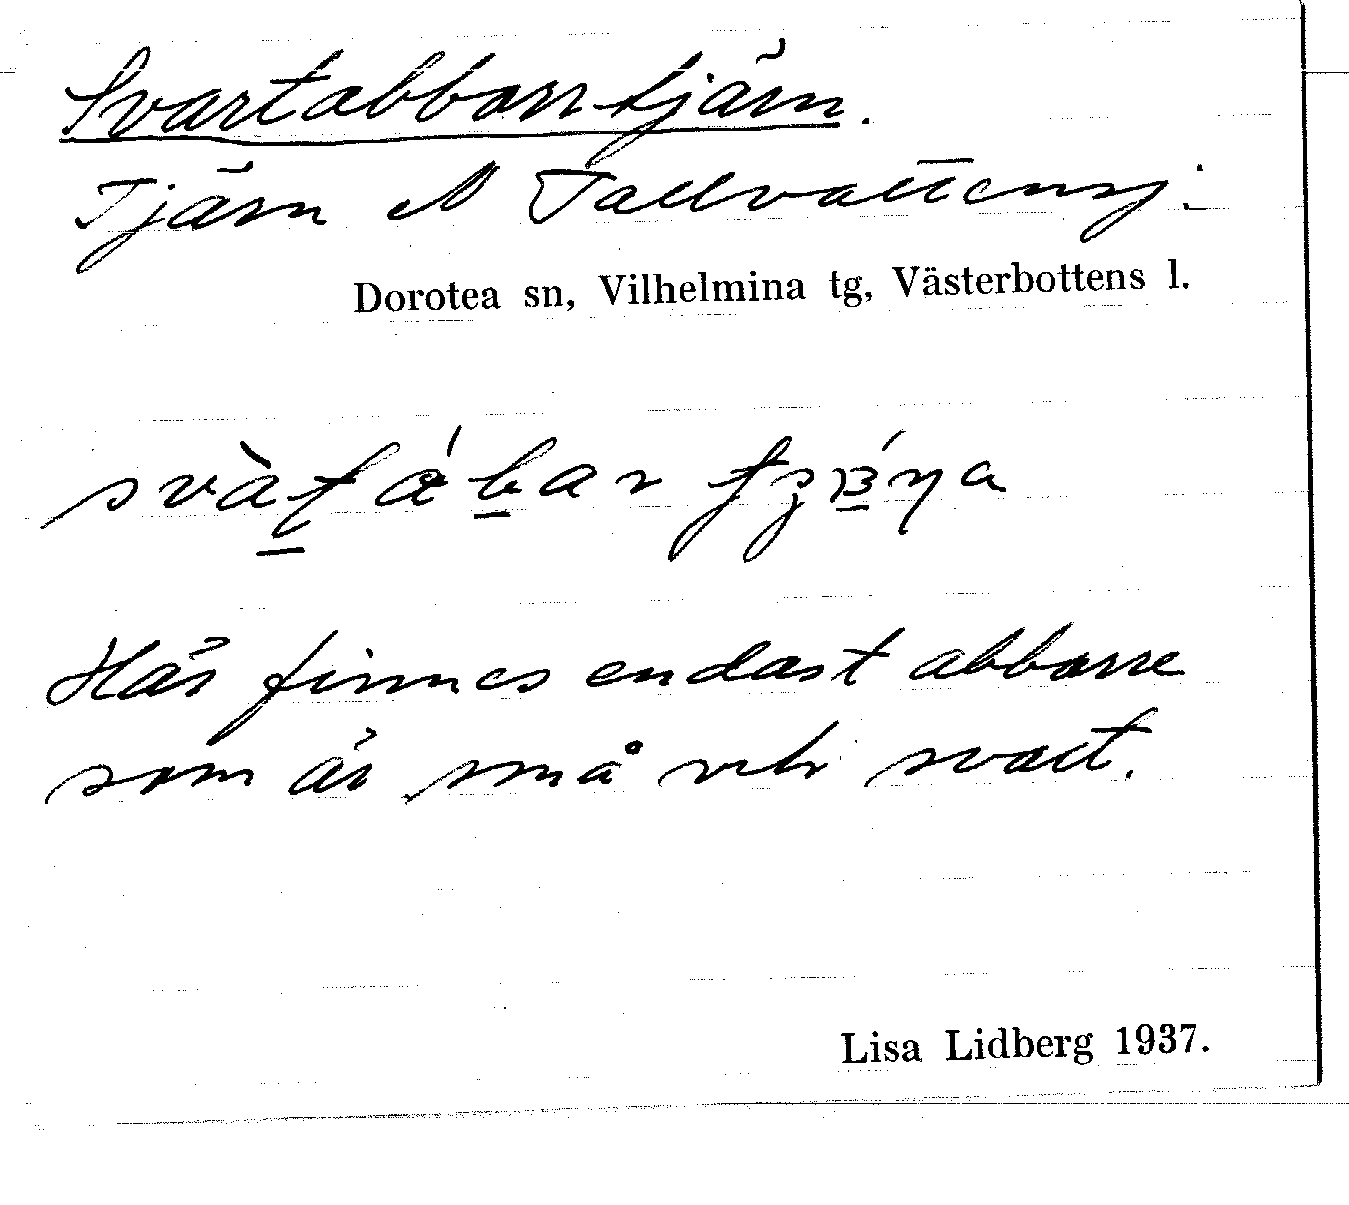 Svartabborrtjärn.
Tjärn N Tallvattensj.
Dorotea sn, Vilhelmina tg, Västerbottens l.
Här finnes endast abborre
som är små och svart.
Lisa Lidberg 1937.